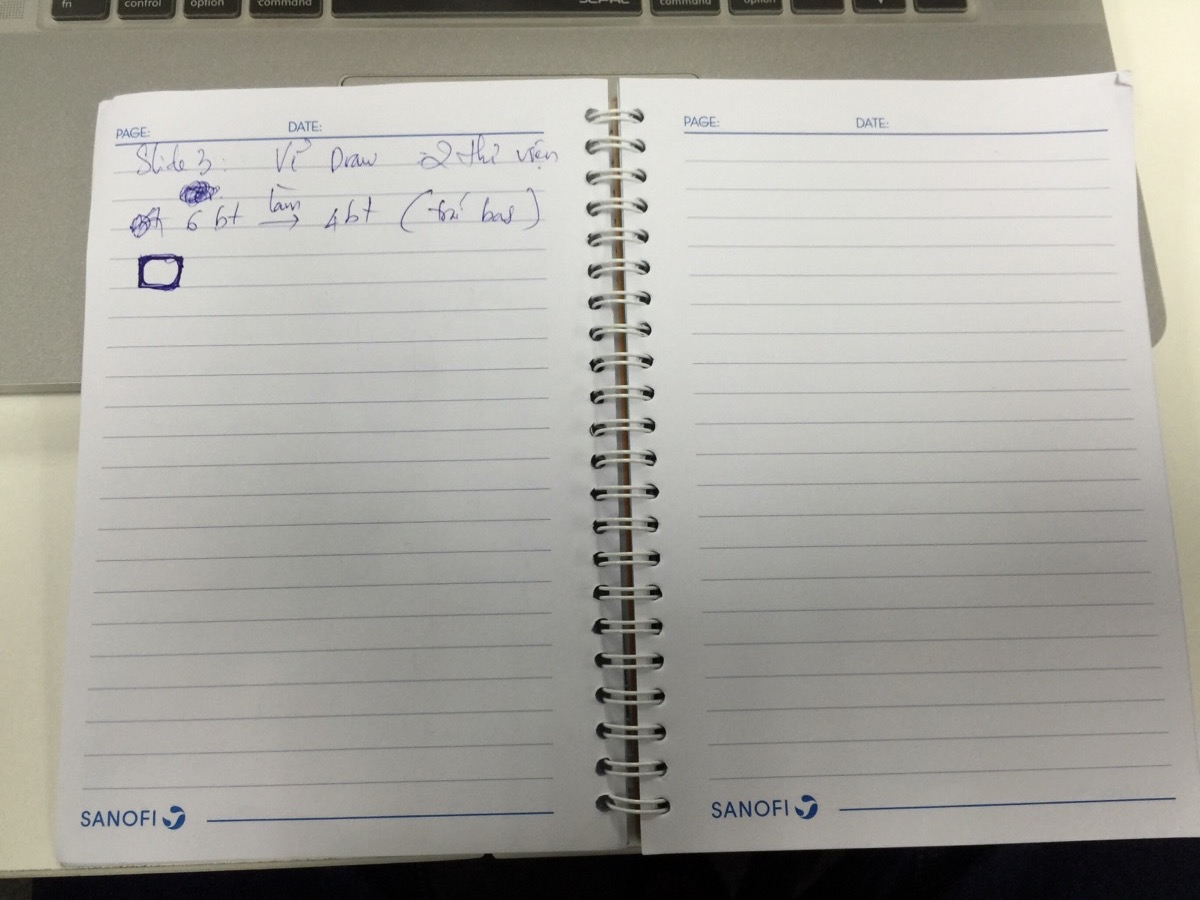 fn control option command command option
PAGE: DATE:
Slide 3: Vẽ Draw 2 thư viện
6 bt làm → 4 bt
SANOFI
PAGE: DATE:
SANOFI